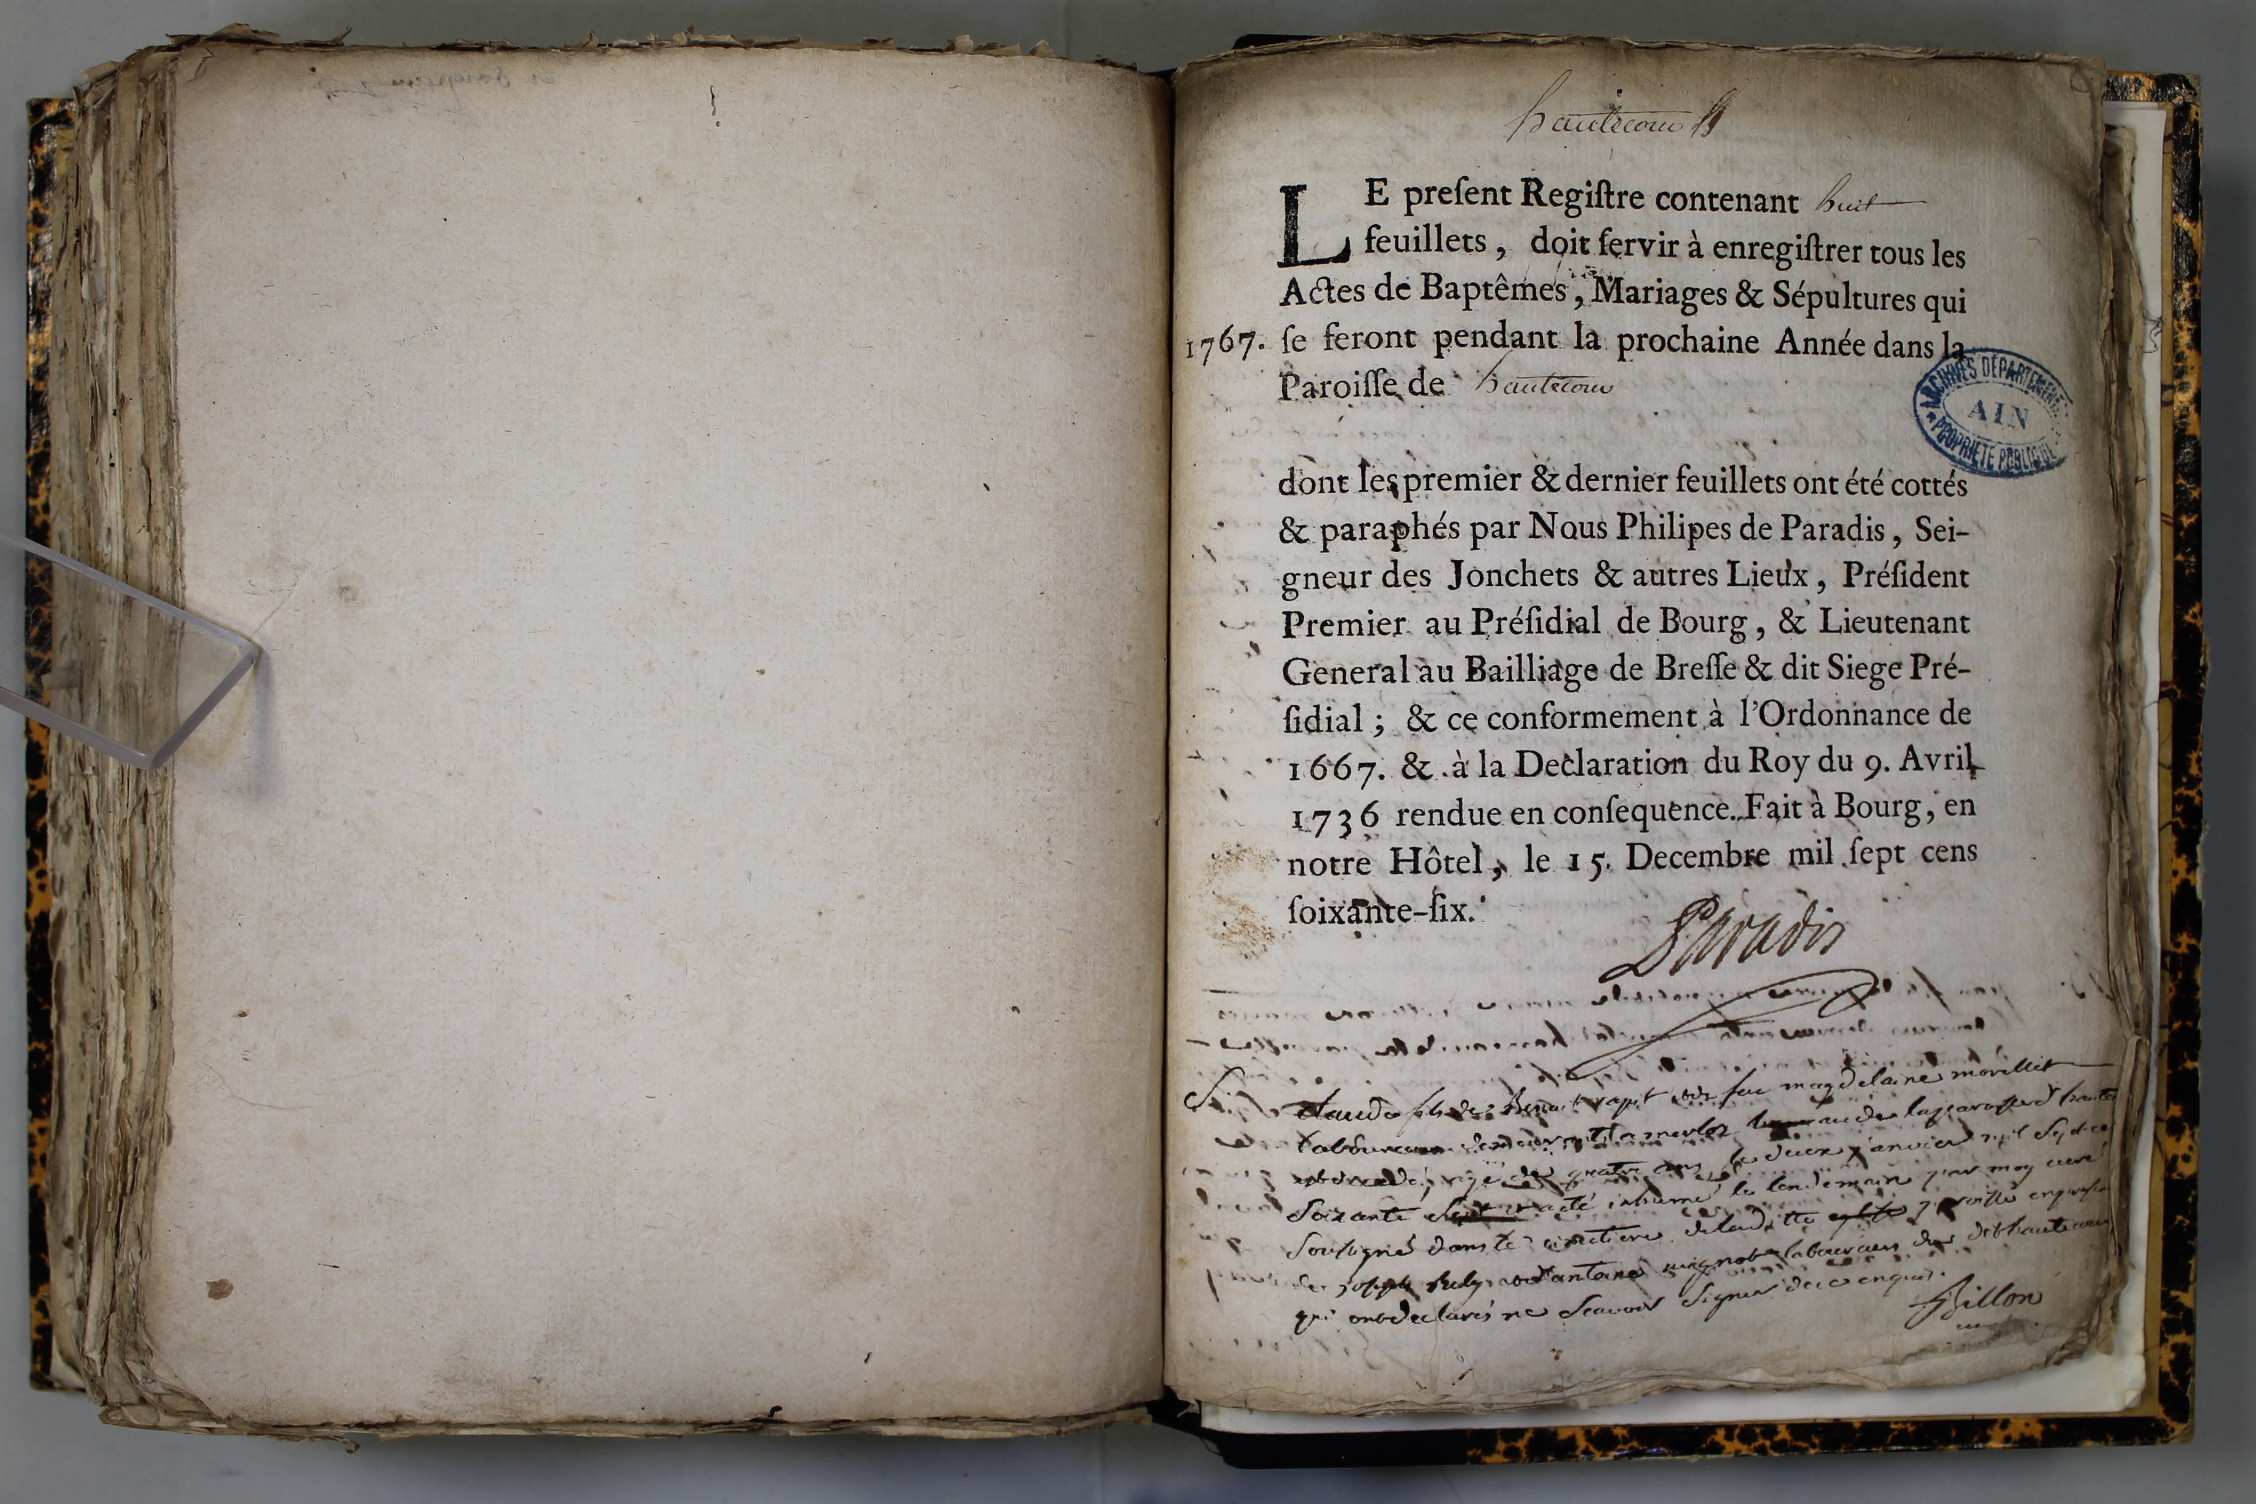 hautecour
LE preſent Regiſtre contenant huit
feuillets, doit ſervir à enregiſtrer tous les
Actes de Baptêmes, Mariages & Sépultures qui
1767. ſe feront pendant la prochaine Année dans la
Paroiſſe de hautecour
ARCHIVES DÉPARTEMENTALES
AIN
PROPRIÉTÉ PUBLIQUE
dont les premier & dernier feuillets ont été cottés
& paraphés par Nous Philipes de Paradis, Sei-
gneur des Jonchets & autres Lieux, Préſident
Premier au Préſidial de Bourg, & Lieutenant
General au Bailliage de Breſſe & dit Siege Pré-
ſidial ; & ce conformement à l'Ordonnance de
1667. & à la Declaration du Roy du 9. Avril
1736 rendue en conſequence. Fait à Bourg, en
notre Hôtel, le 15. Decembre mil ſept cens
ſoixante-ſix.
Paradis
S. Claude fils de Benoit rapt feu magdelaine morillet
laboureur demeurant a merloz de la paroisse d'haute
agé de quatre ans le deux janvier mil sept ce
soixante sept a eté inhumé le lendemain par moy curé
soubsigné dans le cimetiere de laditte paroisse en presen
de joseph antoine mignot laboureurs de hautecour
qui ont declarés ne scavoir signer de ce enquis.
Billon
curé